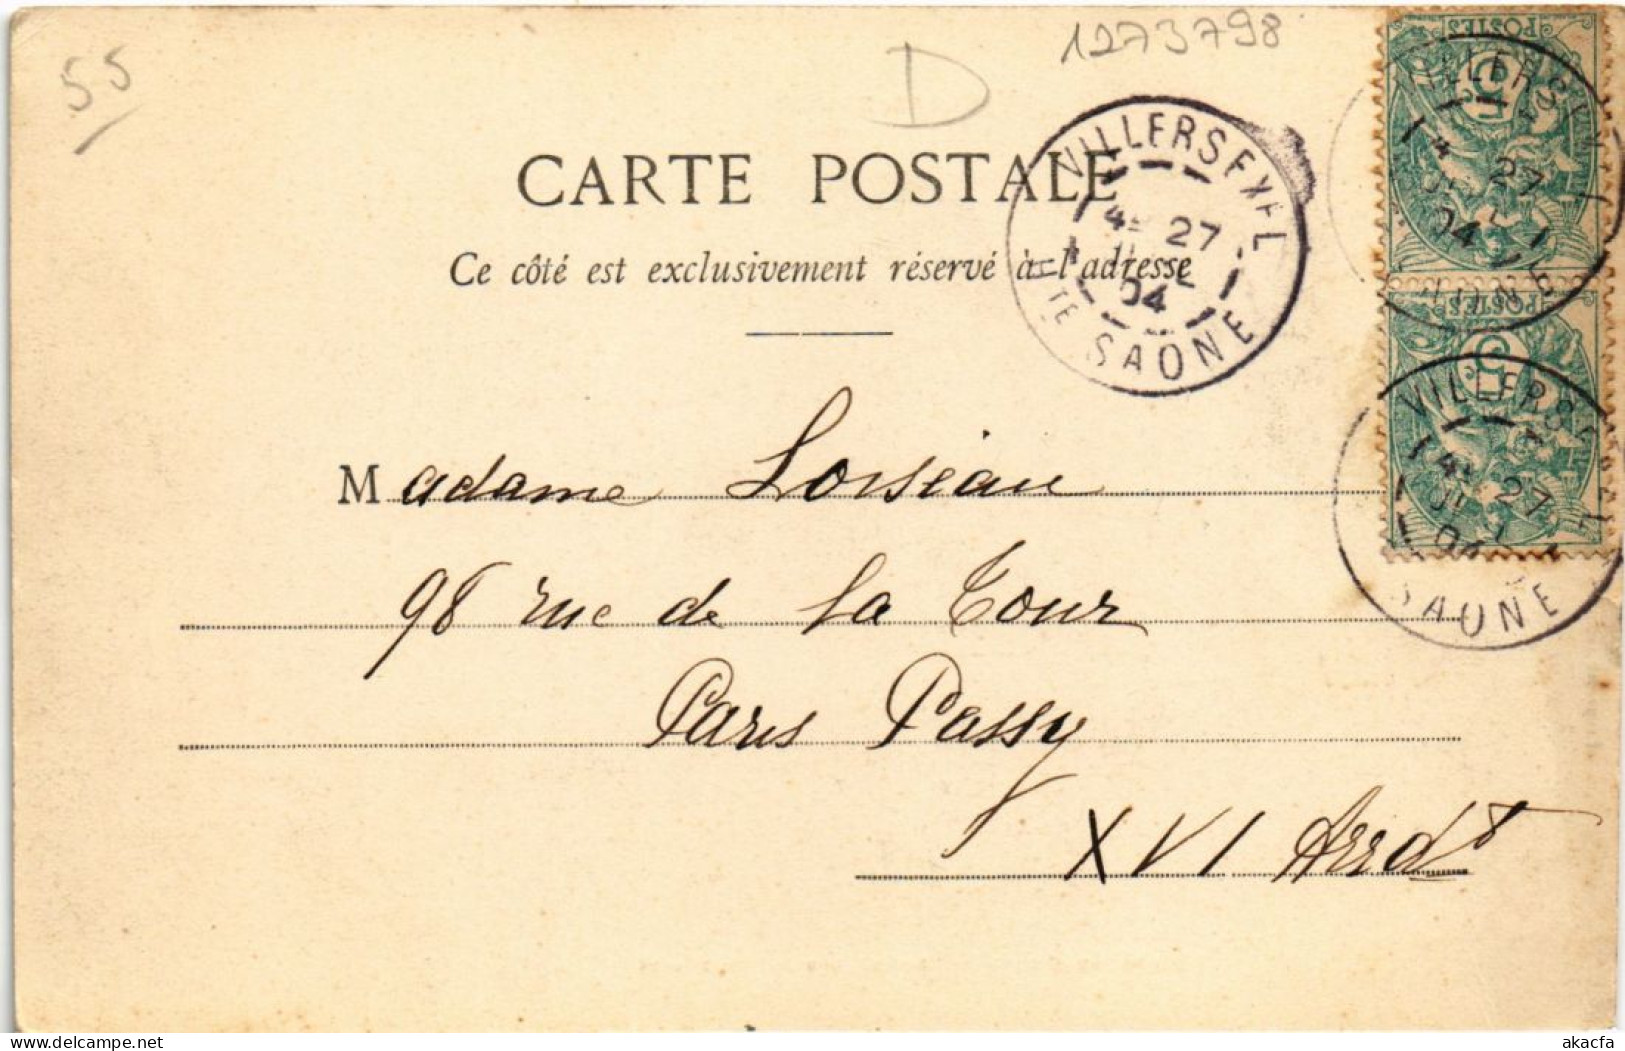 55
D
1273798
CARTE POSTALE
Ce côté est exclusivement réservé à l'adresse
VILLERSEXEL
4E 27
JUIL
04
HTE SAONE
POSTES
5
VILLERSEXEL
27
04
SAONE
POSTES
5
VILLERSEXEL
4E 27
04
SAONE
Madame Loiseau
98 rue de la Tour
Paris Passy
XVI Arrdt
akacfa
www.delcampe.net